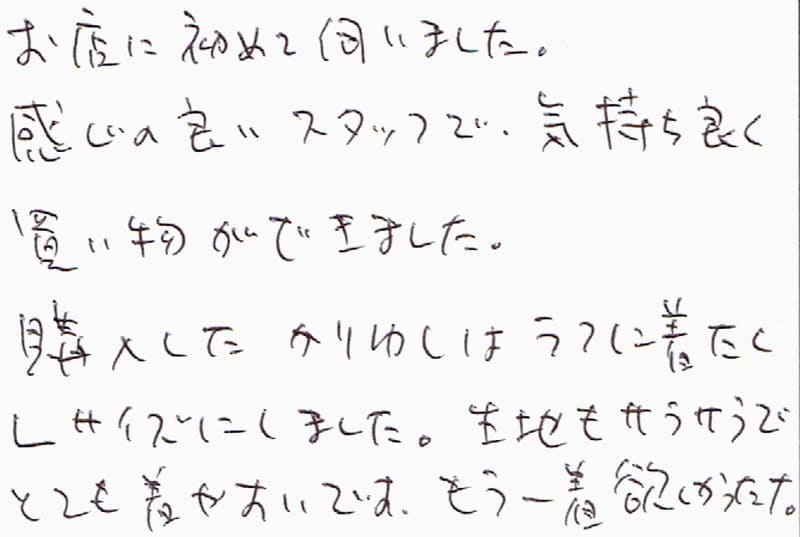 お店に初めて伺いました。
感じの良いスタッフで、気持ち良く
買い物ができました。
購入したかりゆしはラフに着たく
Lサイズにしました。生地もサラサラで
とても着やすいです。もう一着欲しかったナ。